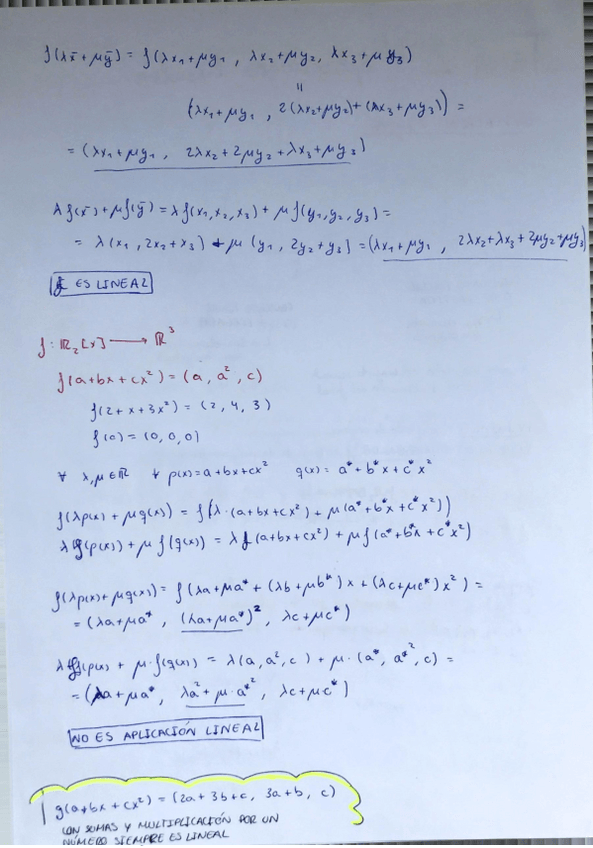 f(λx̄ + μȳ) = f(λx₁+μy₁ , λx₂+μy₂, λx₃+μy₃)
=
(λx₁+μy₁ , 2(λx₂+μy₂)+(λx₃+μy₃)) =
= (λx₁+μy₁ , 2λx₂+2μy₂+λx₃+μy₃)
λf(x̄)+μf(ȳ) = λf(x₁,x₂,x₃) + μf(y₁,y₂,y₃) =
= λ(x₁, 2x₂+x₃) + μ(y₁, 2y₂+y₃) = (λx₁+μy₁ , 2λx₂+λx₃+2μy₂+μy₃)
f ES LINEAL
f: ℝ₂[x] ⟶ ℝ³
f(a+bx+cx²) = (a, a², c)
f(2+x+3x²) = (2, 4, 3)
f(0) = (0,0,0)
∀ λ,μ∈ℝ ∀ p(x)=a+bx+cx² q(x)= a*+b*x+c*x²
f(λp(x) + μq(x)) = f(λ·(a+bx+cx²) + μ(a*+b*x+c*x²))
λf(p(x)) + μf(q(x)) = λf(a+bx+cx²) + μf(a*+b*x+c*x²)
f(λp(x)+μq(x)) = f(λa+μa* + (λb+μb*)x + (λc+μc*)x²) =
= (λa+μa* , (λa+μa*)² , λc+μc*)
λf(p(x)) + μ·f(q(x)) = λ(a, a², c) + μ·(a*, a*², c) =
= (λa+μa* , λa²+μ·a*² , λc+μc*)
NO ES APLICACIÓN LINEAL
g(a+bx+cx²) = (2a+3b+c, 3a+b, c)
CON SUMAS Y MULTIPLICACIÓN POR UN
NÚMERO SIEMPRE ES LINEAL